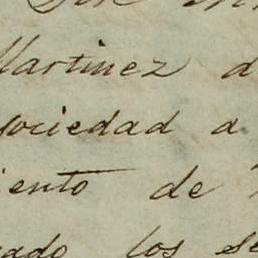 Martinez d
sociedad a
iento de
cado los se